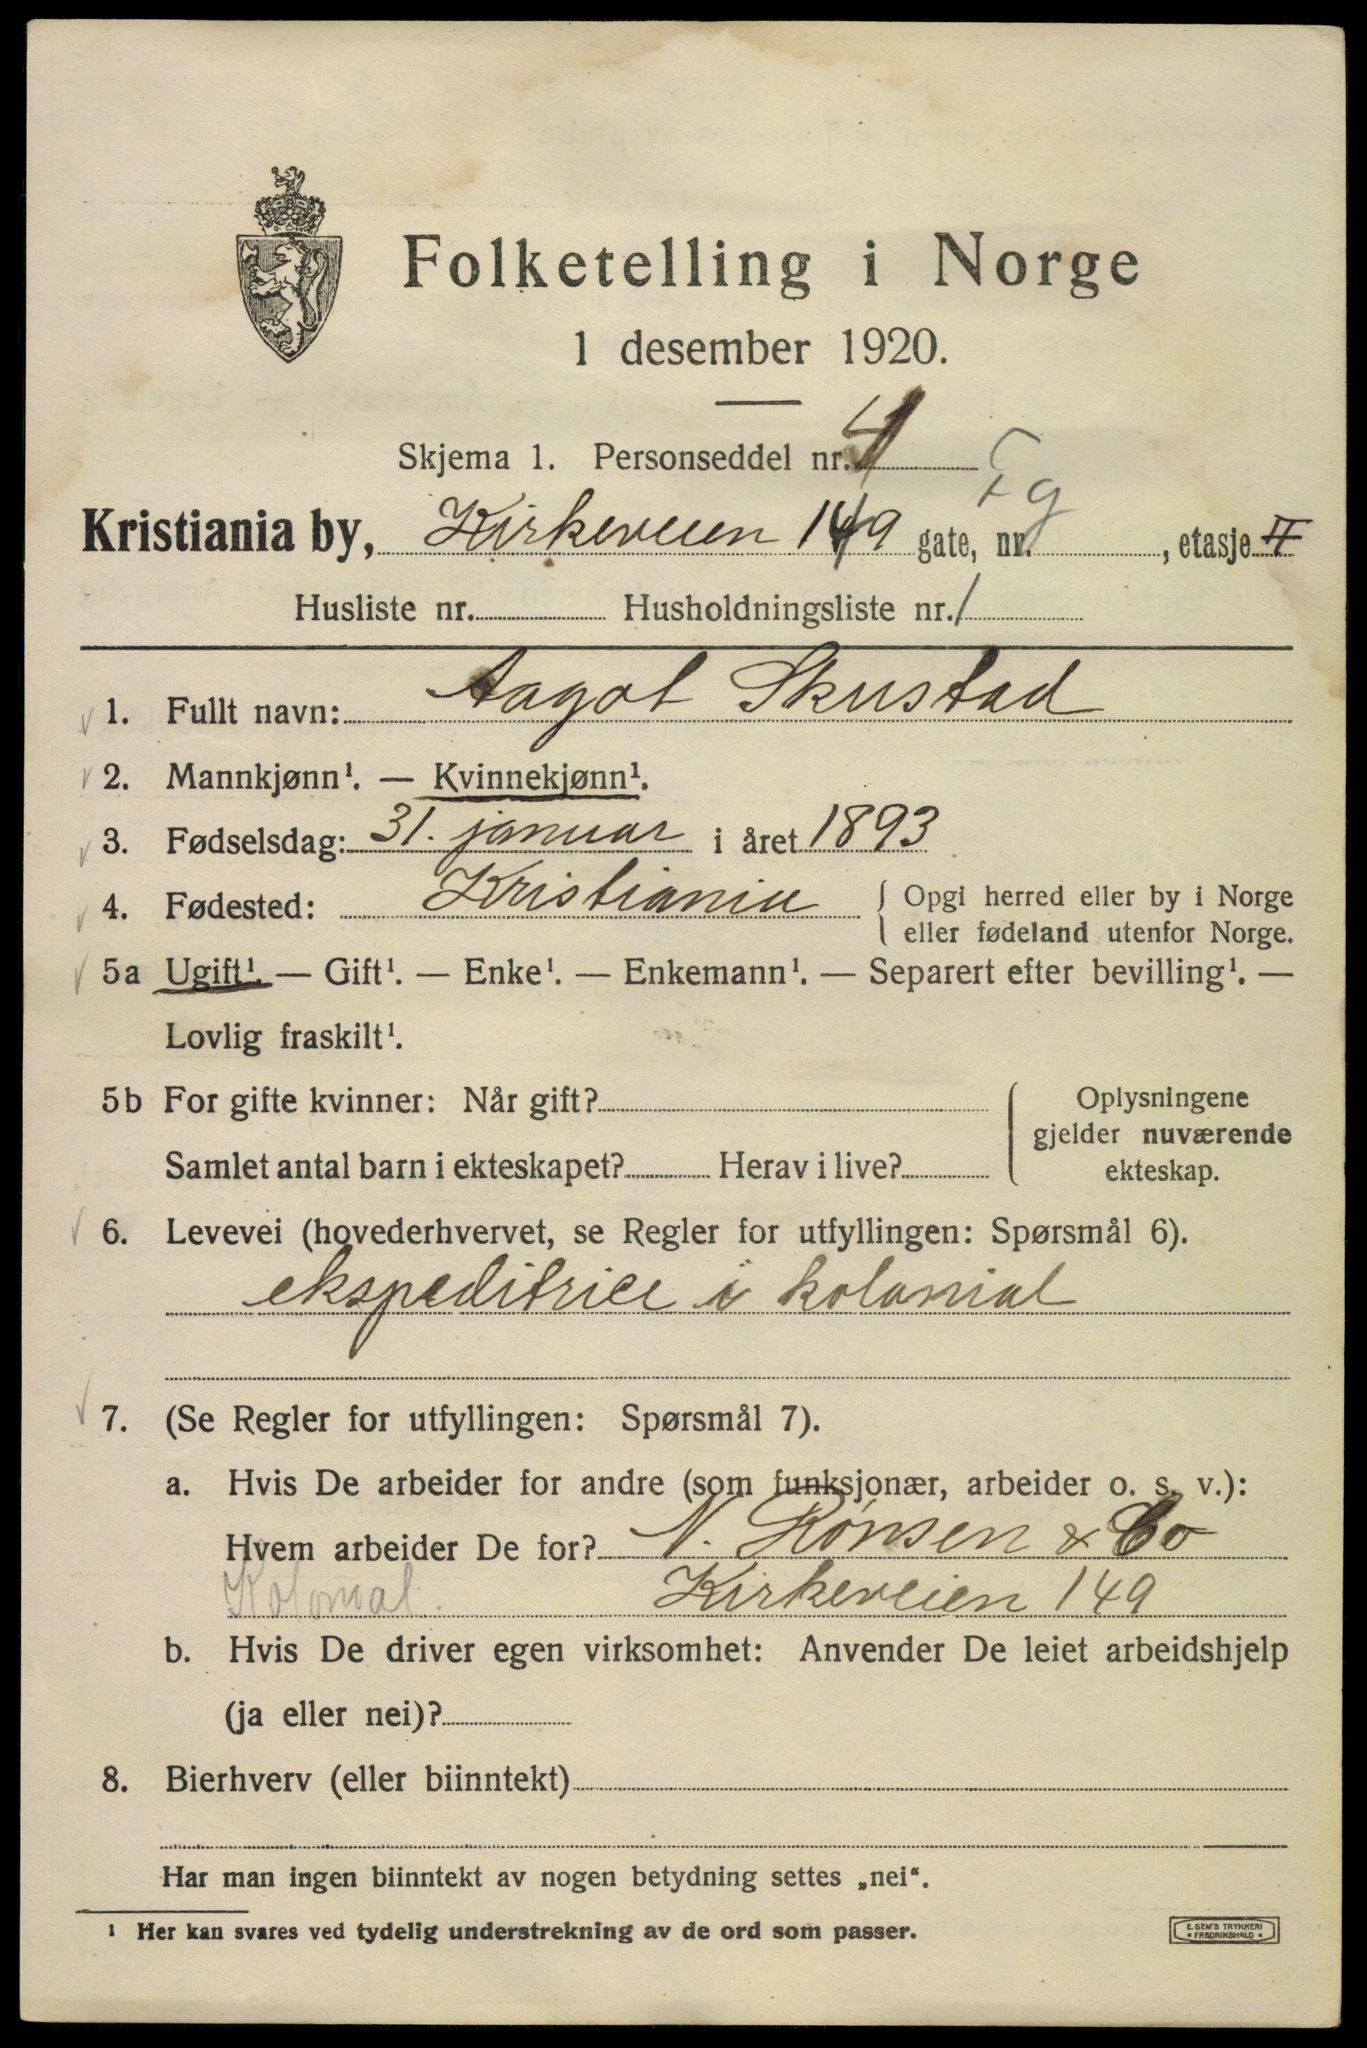 Folketelling i Norge
1 desember 1920.
Skjema 1. Personseddel nr. 4
Kristiania by, Kirkeveien 149 gate, nr. , etasje II
Husliste nr. Husholdningsliste nr. 1
1. Fullt navn: Aagot Skustad
2. Mannkjønn¹. — Kvinnekjønn¹.
3. Fødselsdag: 31. januar i året 1893
4. Fødested: Kristiania { Opgi herred eller by i Norge
eller fødeland utenfor Norge.
5a Ugift¹. — Gift¹. — Enke¹. — Enkemann¹. — Separert efter bevilling¹. —
Lovlig fraskilt¹.
5b For gifte kvinner: Når gift? Oplysningene
gjelder nuværende
Samlet antal barn i ekteskapet? Herav i live? ekteskap.
6. Levevei (hovederhvervet, se Regler for utfyllingen: Spørsmål 6).
ekspeditrice i kolonial
7. (Se Regler for utfyllingen: Spørsmål 7).
a. Hvis De arbeider for andre (som funksjonær, arbeider o. s. v.):
Hvem arbeider De for? N. Rønsen & Co
Kolonial. Kirkeveien 149
b. Hvis De driver egen virksomhet: Anvender De leiet arbeidshjelp
(ja eller nei)?
8. Bierhverv (eller biinntekt)
Har man ingen biinntekt av nogen betydning settes „nei“.
¹ Her kan svares ved tydelig understrekning av de ord som passer.
E. SEM'S TRYKKERI
• FREDRIKSHALD •